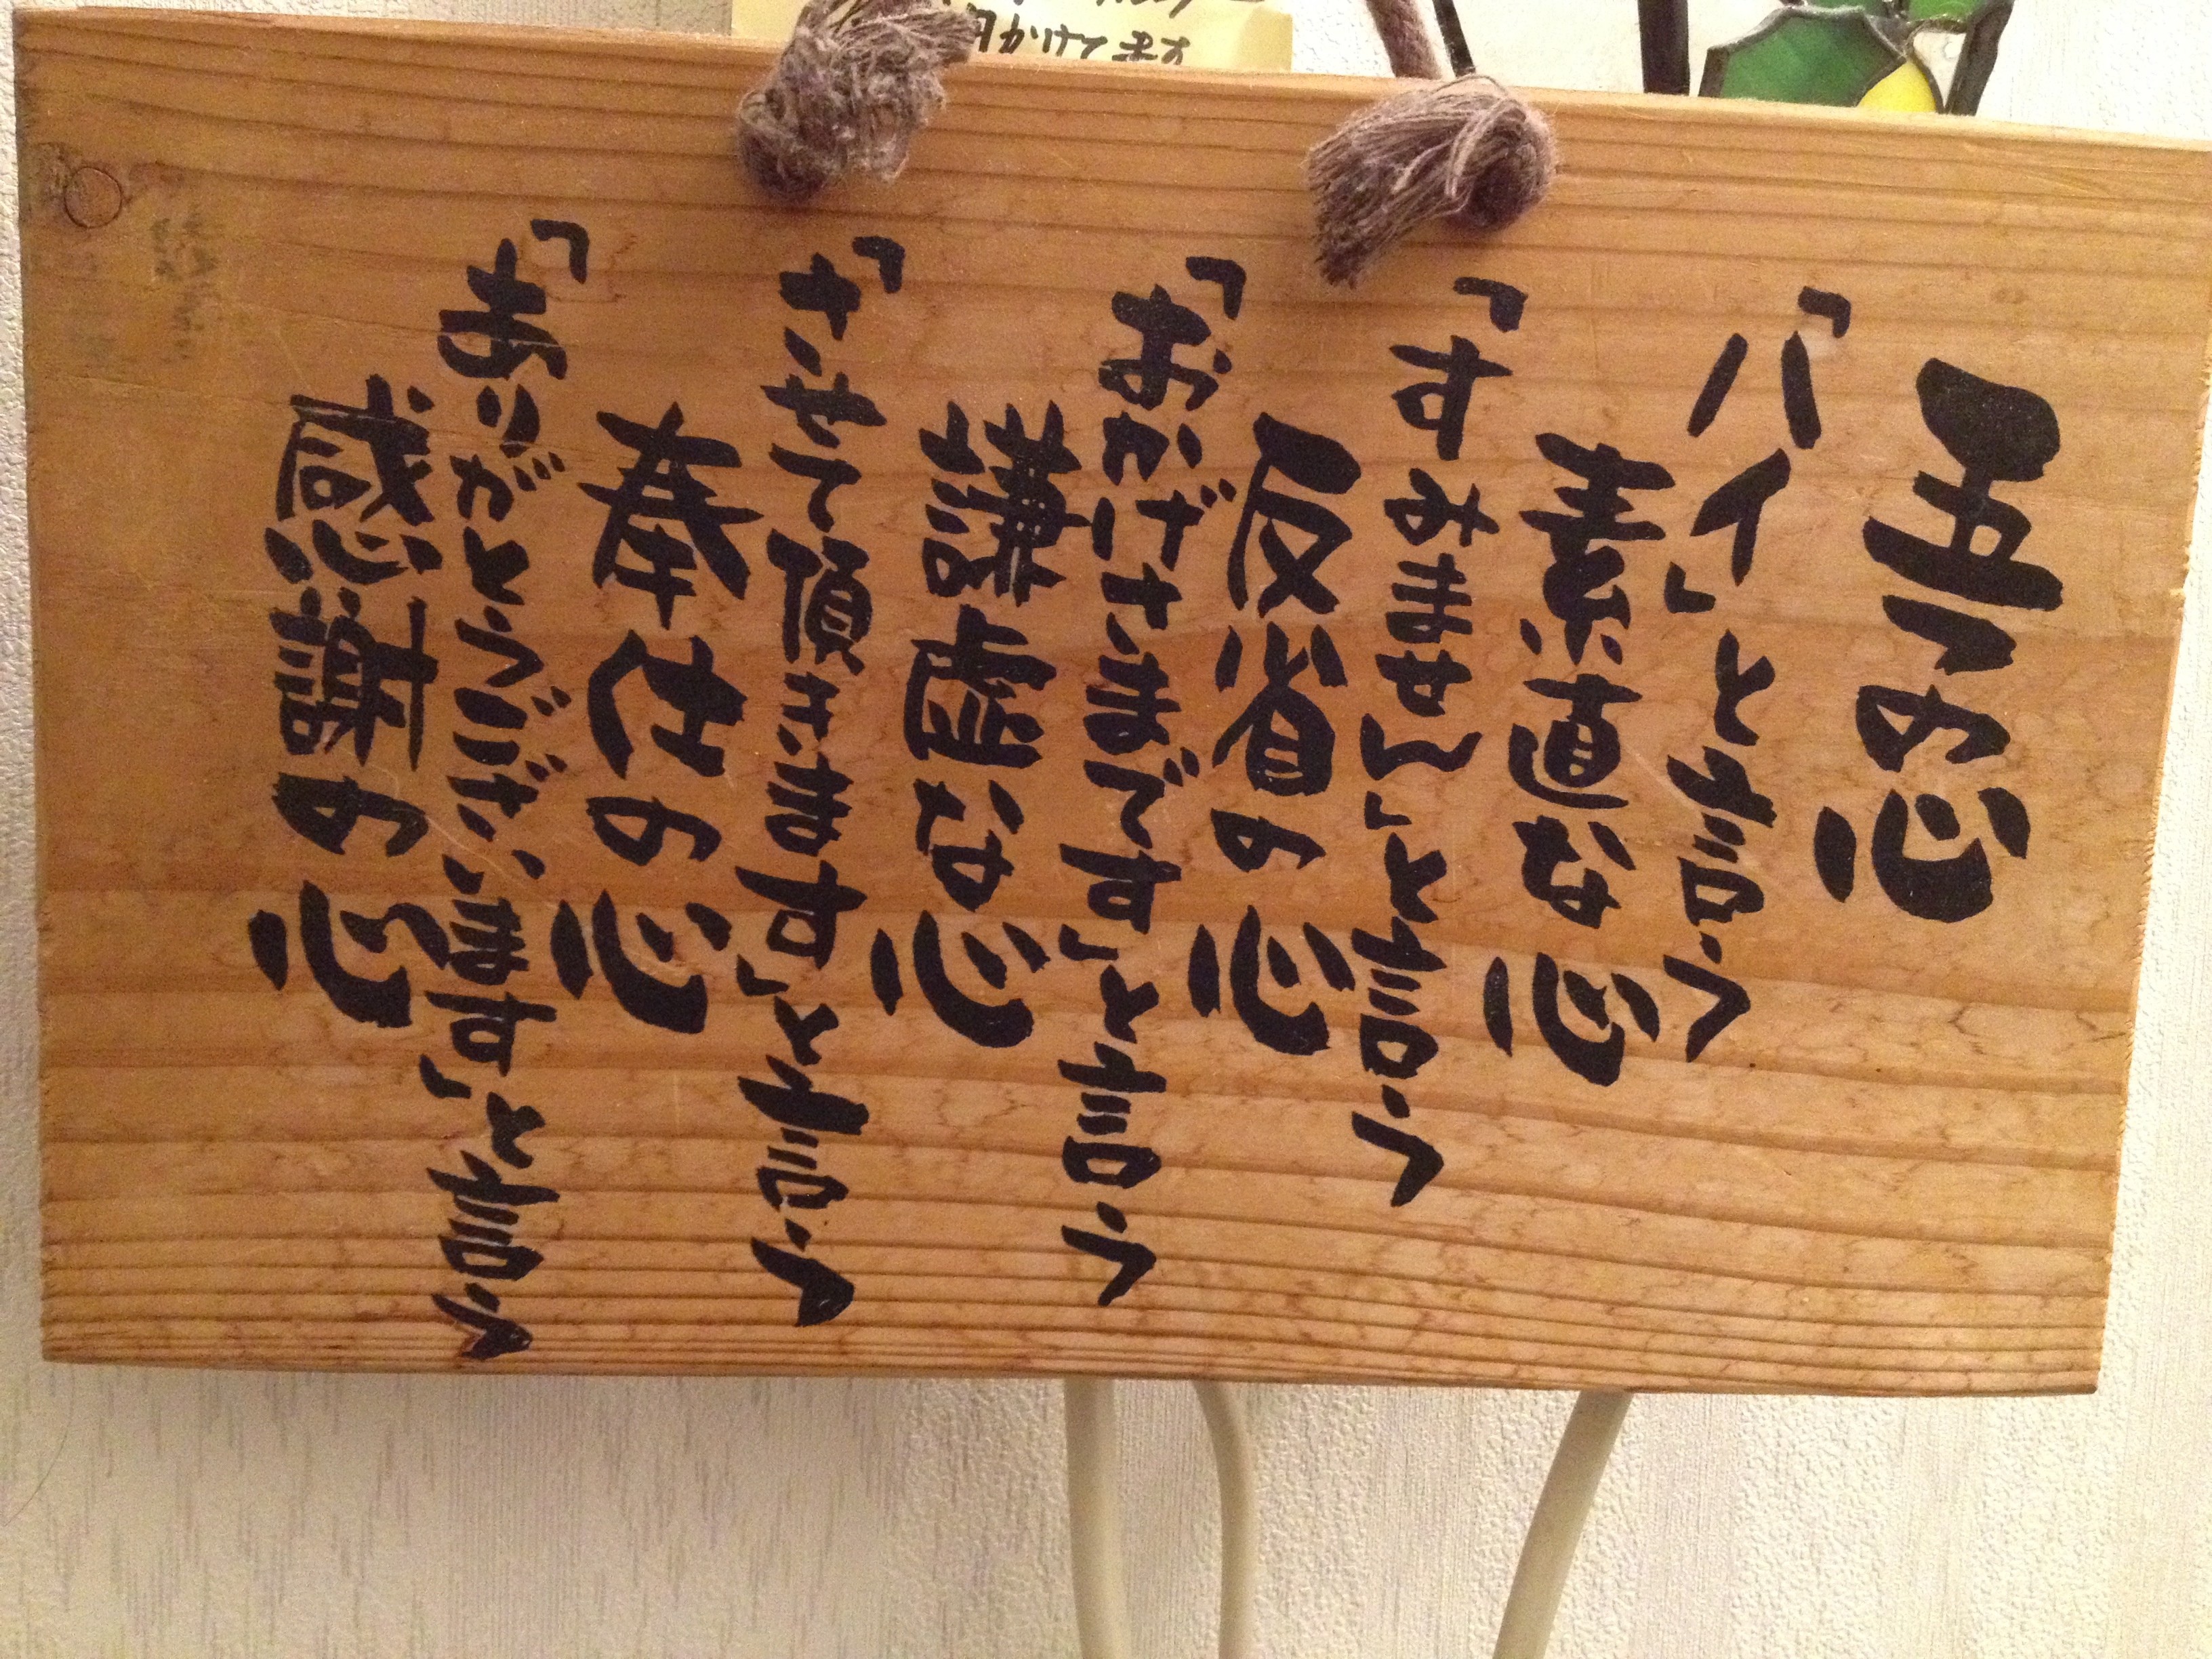 五つの心
「ハイ」と言う
素直な心
「すみません」と言う
反省の心
「おかげさまです」と言う
謙虚な心
「させて頂きます」と言う
奉仕の心
「ありがとうございます」と言う
感謝の心
かけてます